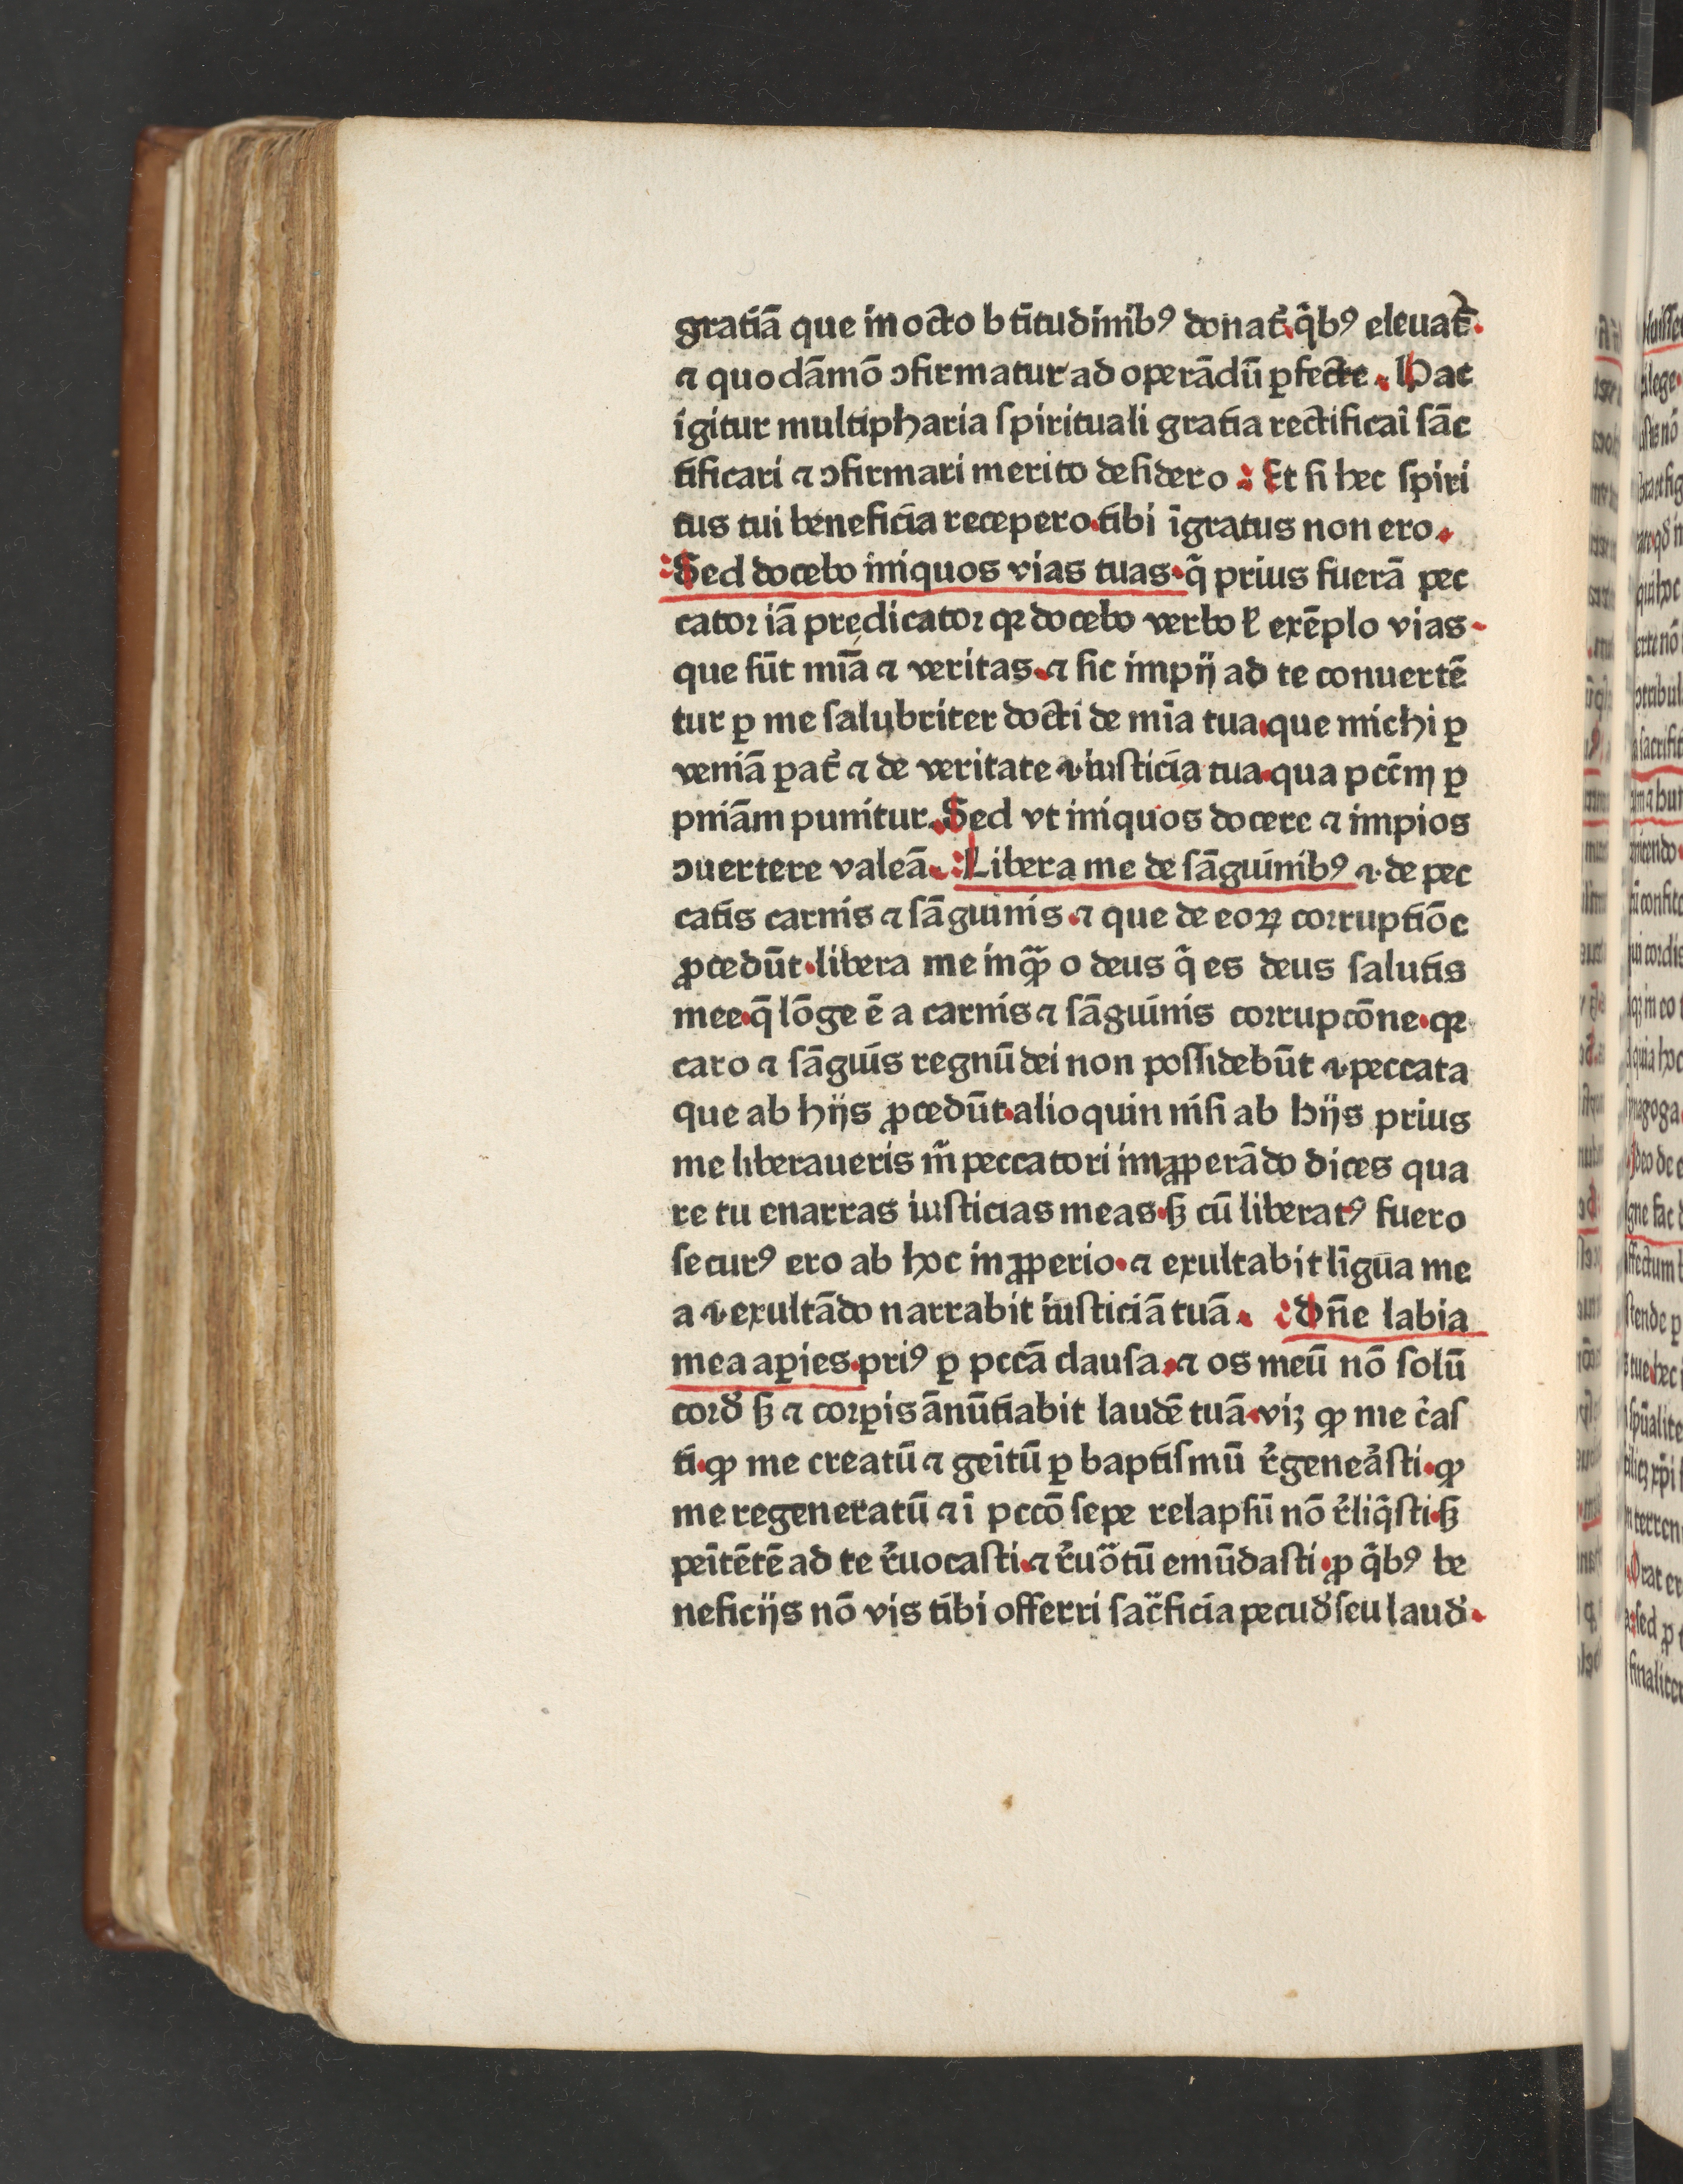 gratiā que in octo btītudinibꝰ donat᷑.q̄bꝰ eleuat᷑.
⁊ quodāmō ↄfirmatur ad operādū ꝑfecte. Hac
igitur multipharia spirituali gratia rectificaī sāc
tificari ⁊ ↄfirmari merito desidero: Et si hec spiri
tus tui beneficia recepero.tibi īgratus non ero.
:Sed docebo iniquos vias tuas.q̄ prius fuerā pec
cator iā predicator qꝛ docebo verbo ł exēplo vias.
que sūt mīa ⁊ veritas.⁊ sic impij ad te conuertē
tur ꝑ me salubriter docti de mīa tua.que michi ꝑ
veniā ꝑat᷑ ⁊ de veritate ⁊ iusticia tua.qua pcc̄m ꝑ
pniām punitur. Sed vt iniquos docere ⁊ impios
ↄuertere valeā. :Libera me de sāguinibꝰ ⁊ de pec
catis carnis ⁊ sāguinis.⁊ que de eoꝝ corruptiōe
ꝓcedūt.libera me inquā o deus q̄ es deus salutis
mee.q̄ lōge ē a carnis ⁊ sāguinis corrupcōne.qꝛ
caro ⁊ sāguis regnū dei non possidebūt ⁊ peccata
que ab hijs ꝓcedūt.alioquin nisi ab hijs prius
me liberaueris m̄ peccatori imꝓperādo dices qua
re tu enarras iusticias meas.sꝫ cū liberatꝰ fuero
securꝰ ero ab hoc inꝓperio.⁊ exultabit līgua me
a ⁊ exultādo narrabit iusticiā tuā. :Dn̄e labia
mea aꝑies.priꝰ ꝑ pccā clausa.⁊ os meū nō solū
cord̕ sꝫ ⁊ corꝑis ānūtiabit laudē tuā.viꝫ ꝙ me c᷑as
ti.ꝙ me creatū ⁊ geītū ꝑ baptismū r᷑genea᷑sti.ꝙ
me regeneratū ⁊ ī pccō sepe relapsū nō r᷑liq̄sti.sꝫ
peītētē ad te r᷑uocasti.⁊ r᷑uo᷑tū emūdasti.ꝓ q̄bꝰ be
neficijs nō vis tibi offerri sac᷑ficia pecud̕ seu laud̕.